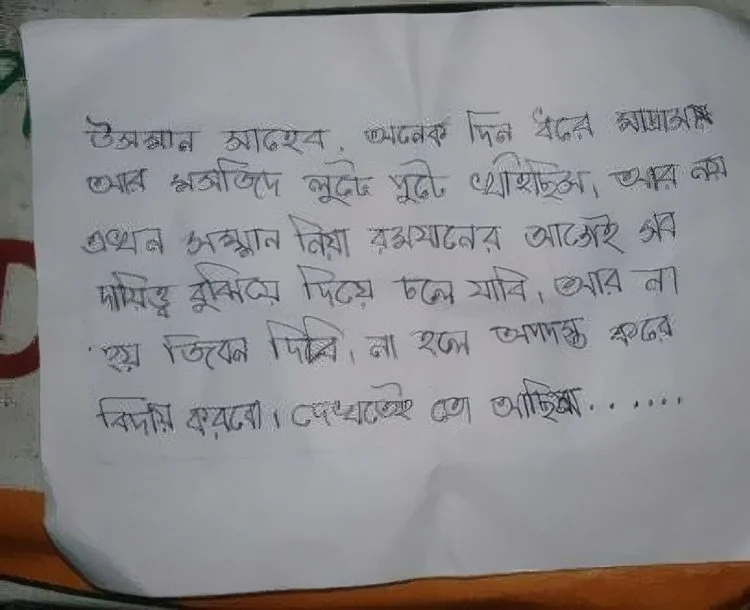 উসমান সাহেব, অনেক দিন ধরে মাদ্রাসা
আর মসজিদ লুটে পুটে খাইছিস, আর নয়
এখন সম্মান নিয়া রমযানের আগেই সব
দায়িত্ব বুঝিয়ে দিয়ে চলে যাবি, আর না
হয় জিবন দিবি, না হলে অপদস্ত করে
বিদায় করবো। দেখতেই তো আছিস.......